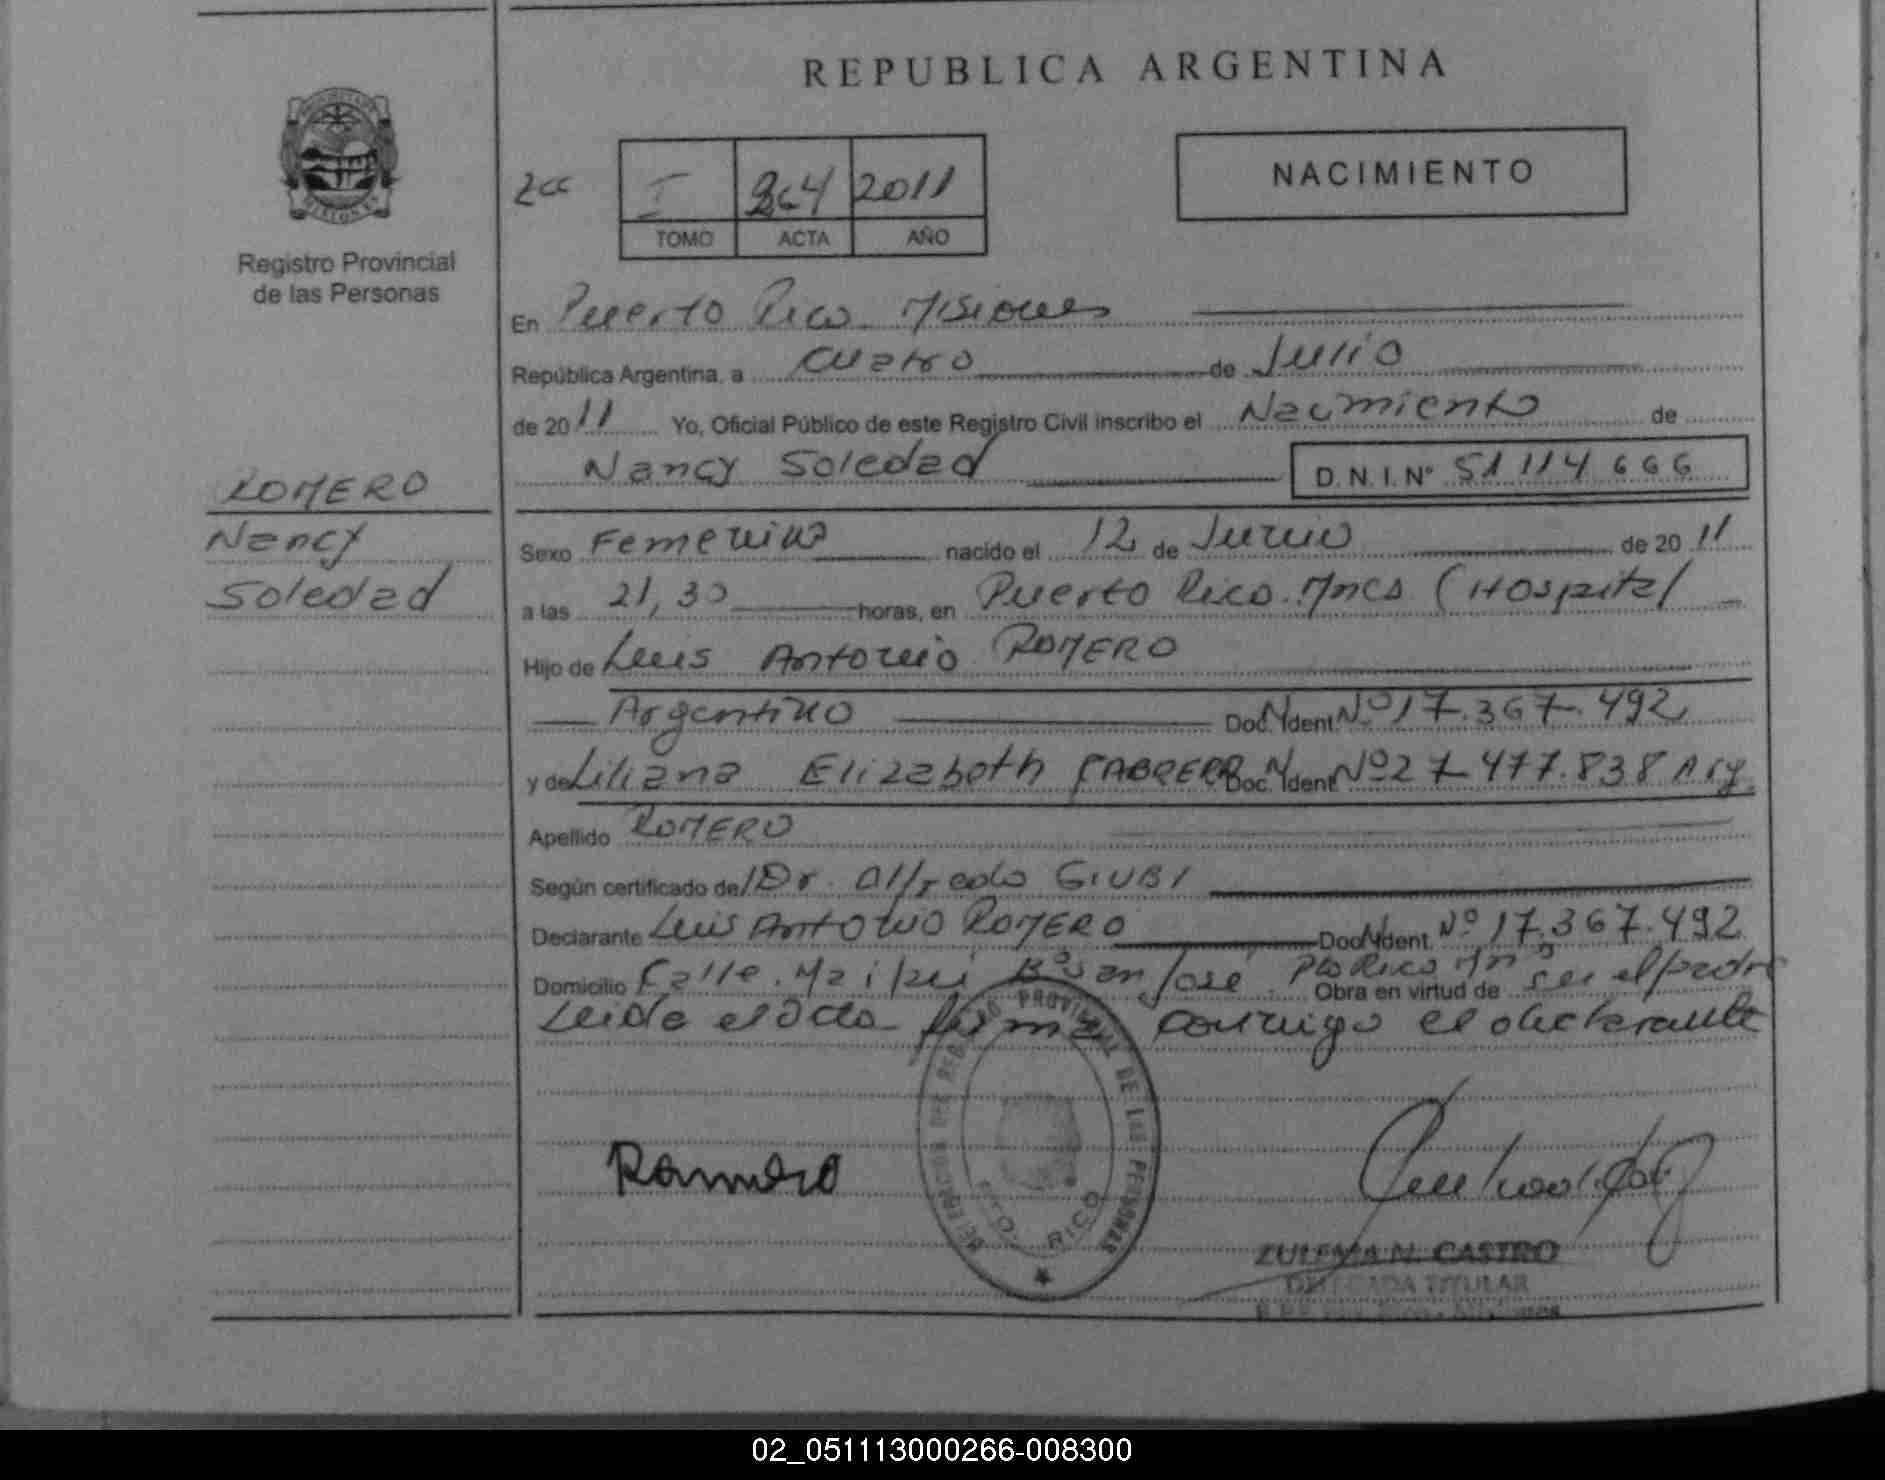 REPUBLICA ARGENTINA
NACIMIENTO
2cc
I 264 2011
TOMO ACTA AÑO
Registro Provincial
de las Personas
En Puerto Rico Misiones
República Argentina, a cuatro de Julio
de 2011 Yo, Oficial Público de este Registro Civil inscribo el Nacimiento de
Nancy Soledad D.N.I. Nº 51 114 666
ROMERO
Nancy
Soledad
Sexo Femenino nacido el 12 de Junio de 2011
a las 21,30 horas, en Puerto Rico. Mnes (Hospital
Hijo de Luis Antonio ROMERO
Argentino Doc. Ident. Nº 17.367.492
y de Liliana Elizabeth CABRERA Doc. Ident. Nº 27.477.838 Arg.
Apellido ROMERO
Según certificado de Dr. Alfredo GIUBI
Declarante Luis Antonio ROMERO Doc. Ident. Nº 17.367.492
Domicilio Calle. Maipú Bº San José. Pto Rico Mnes Obra en virtud de ser el padre
Leida el Acta firma conmigo el declarante
DELEGACION DEL REGISTRO PROVINCIAL DE LAS PERSONAS
PTO. RICO
Romero
ZULEMA N. CASTRO
DELEGADA TITULAR
02_051113000266-008300